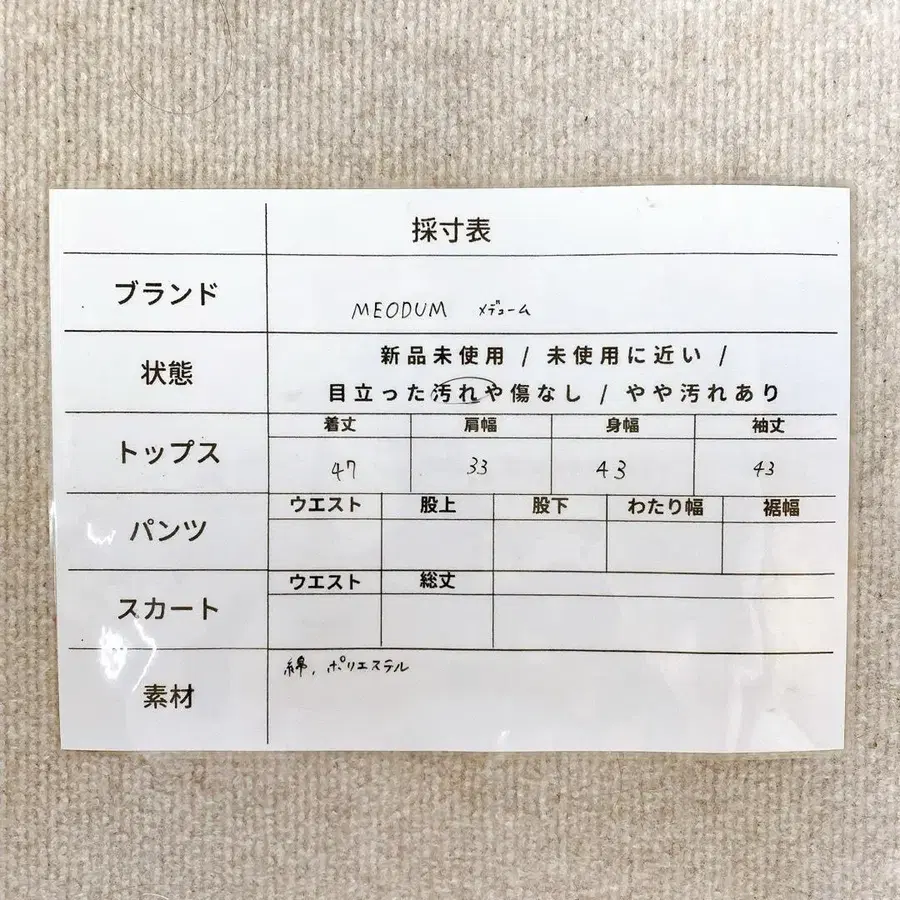 採寸表
ブランド
MEODUM メデューム
状態
新品未使用 / 未使用に近い /
目立った汚れや傷なし / やや汚れあり
トップス
着丈 肩幅 身幅 袖丈
47 33 43 43
パンツ
ウエスト 股上 股下 わたり幅 裾幅
スカート
ウエスト 総丈
素材
綿, ポリエステル